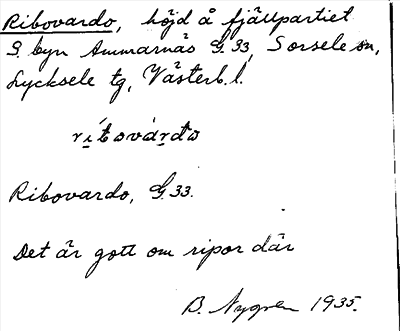 Ribovardo, höjd å fjällpartiet
S. byn Ammarnäs G. 33, Sorsele sn,
Lycksele tg, Västerb. l.
Ribovardo, G. 33.
Det är gott om ripor där
B. Nygren 1935.